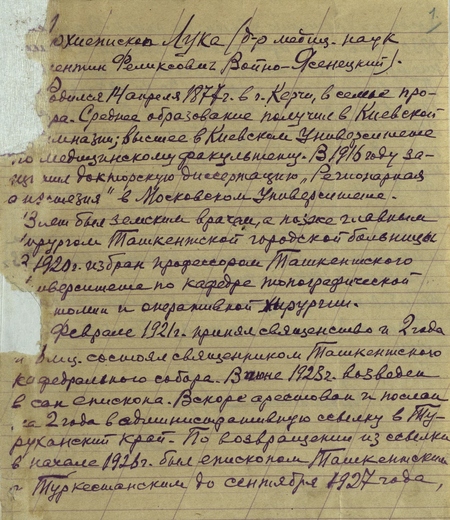 1.
рхиепископ Лука (д-р медиц. наук
ентин Феликсович Войно-Ясенецкий).
одился 14 апреля 1877г. в г. Керчи, в семье про-
ра. Среднее образование получил в Киевской
имназии; высшее в Киевском Университете
по медицинскому факультету. В 1916 году за-
щитил докторскую диссертацию „Регионарная
анестезия" в Московском Университете.
13 лет был земским врачом, а позже главным
хирургом Ташкентской городской больницы
1920г. избран профессором Ташкентского
ниверситета по кафедре топографической
томии и оперативной хирургии.
Феврале 1921г. принял священство и 2 года
состоял священником Ташкентского
кафедрального собора. В июне 1923г. возведен
в сан епископа. Вскоре арестован и послан
на 2 года в административную ссылку в Ту-
руханский край. По возвращении из ссылки
в начале 1926г. был епископом Ташкентским
и Туркестанским до сентября 1927 года,